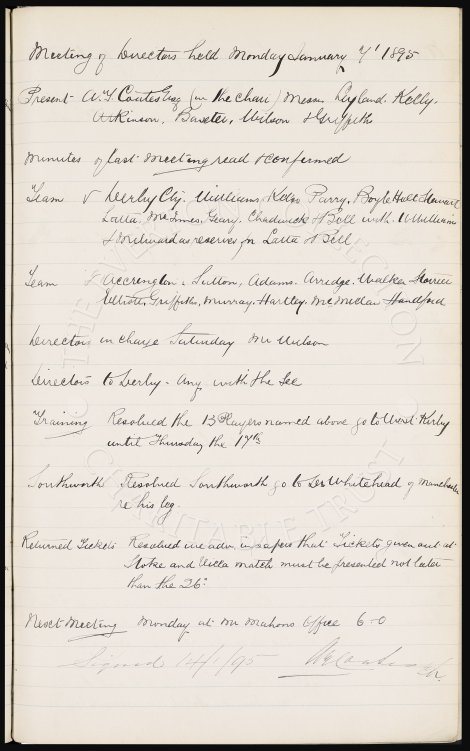 Meeting of Directors held Monday January 7/1895
Present A.Y. Coates Esq (in the chair) Messrs Leyland. Kelly.
Atkinson, Baxter, Wilson & Griffith
Minutes of last Meeting read & confirmed
Team v Derby Cty. Williams, Kelso Parry, Boyle Holt Stewart
Latta, McInnes, Geary. Chadwick & Bell with W Williams
& Milward as reserves for Latta & Bell
Team v Accrington. Sutton, Adams. Arridge. Walker Storrier
Elliott, Griffiths, Murray. Hartley. McMillan Handford
Directors in charge Saturday Mr Wilson
Directors to Derby - Any with the Sec
Training Resolved the 13 Players named above go to West Kirby
until Thursday the 17th
Southworth Resolved Southworth go to Dr Whitehead of Manchester
re his leg.
Returned Tickets Resolved we adv. in papers that Tickets given out at
Stoke and Villa match must be presented not later
than the 26:
Next Meeting Monday at Mr Mahons Office 6-0
Signed 14/1/95
THE EVERTON COLLECTION
CHARITABLE TRUST